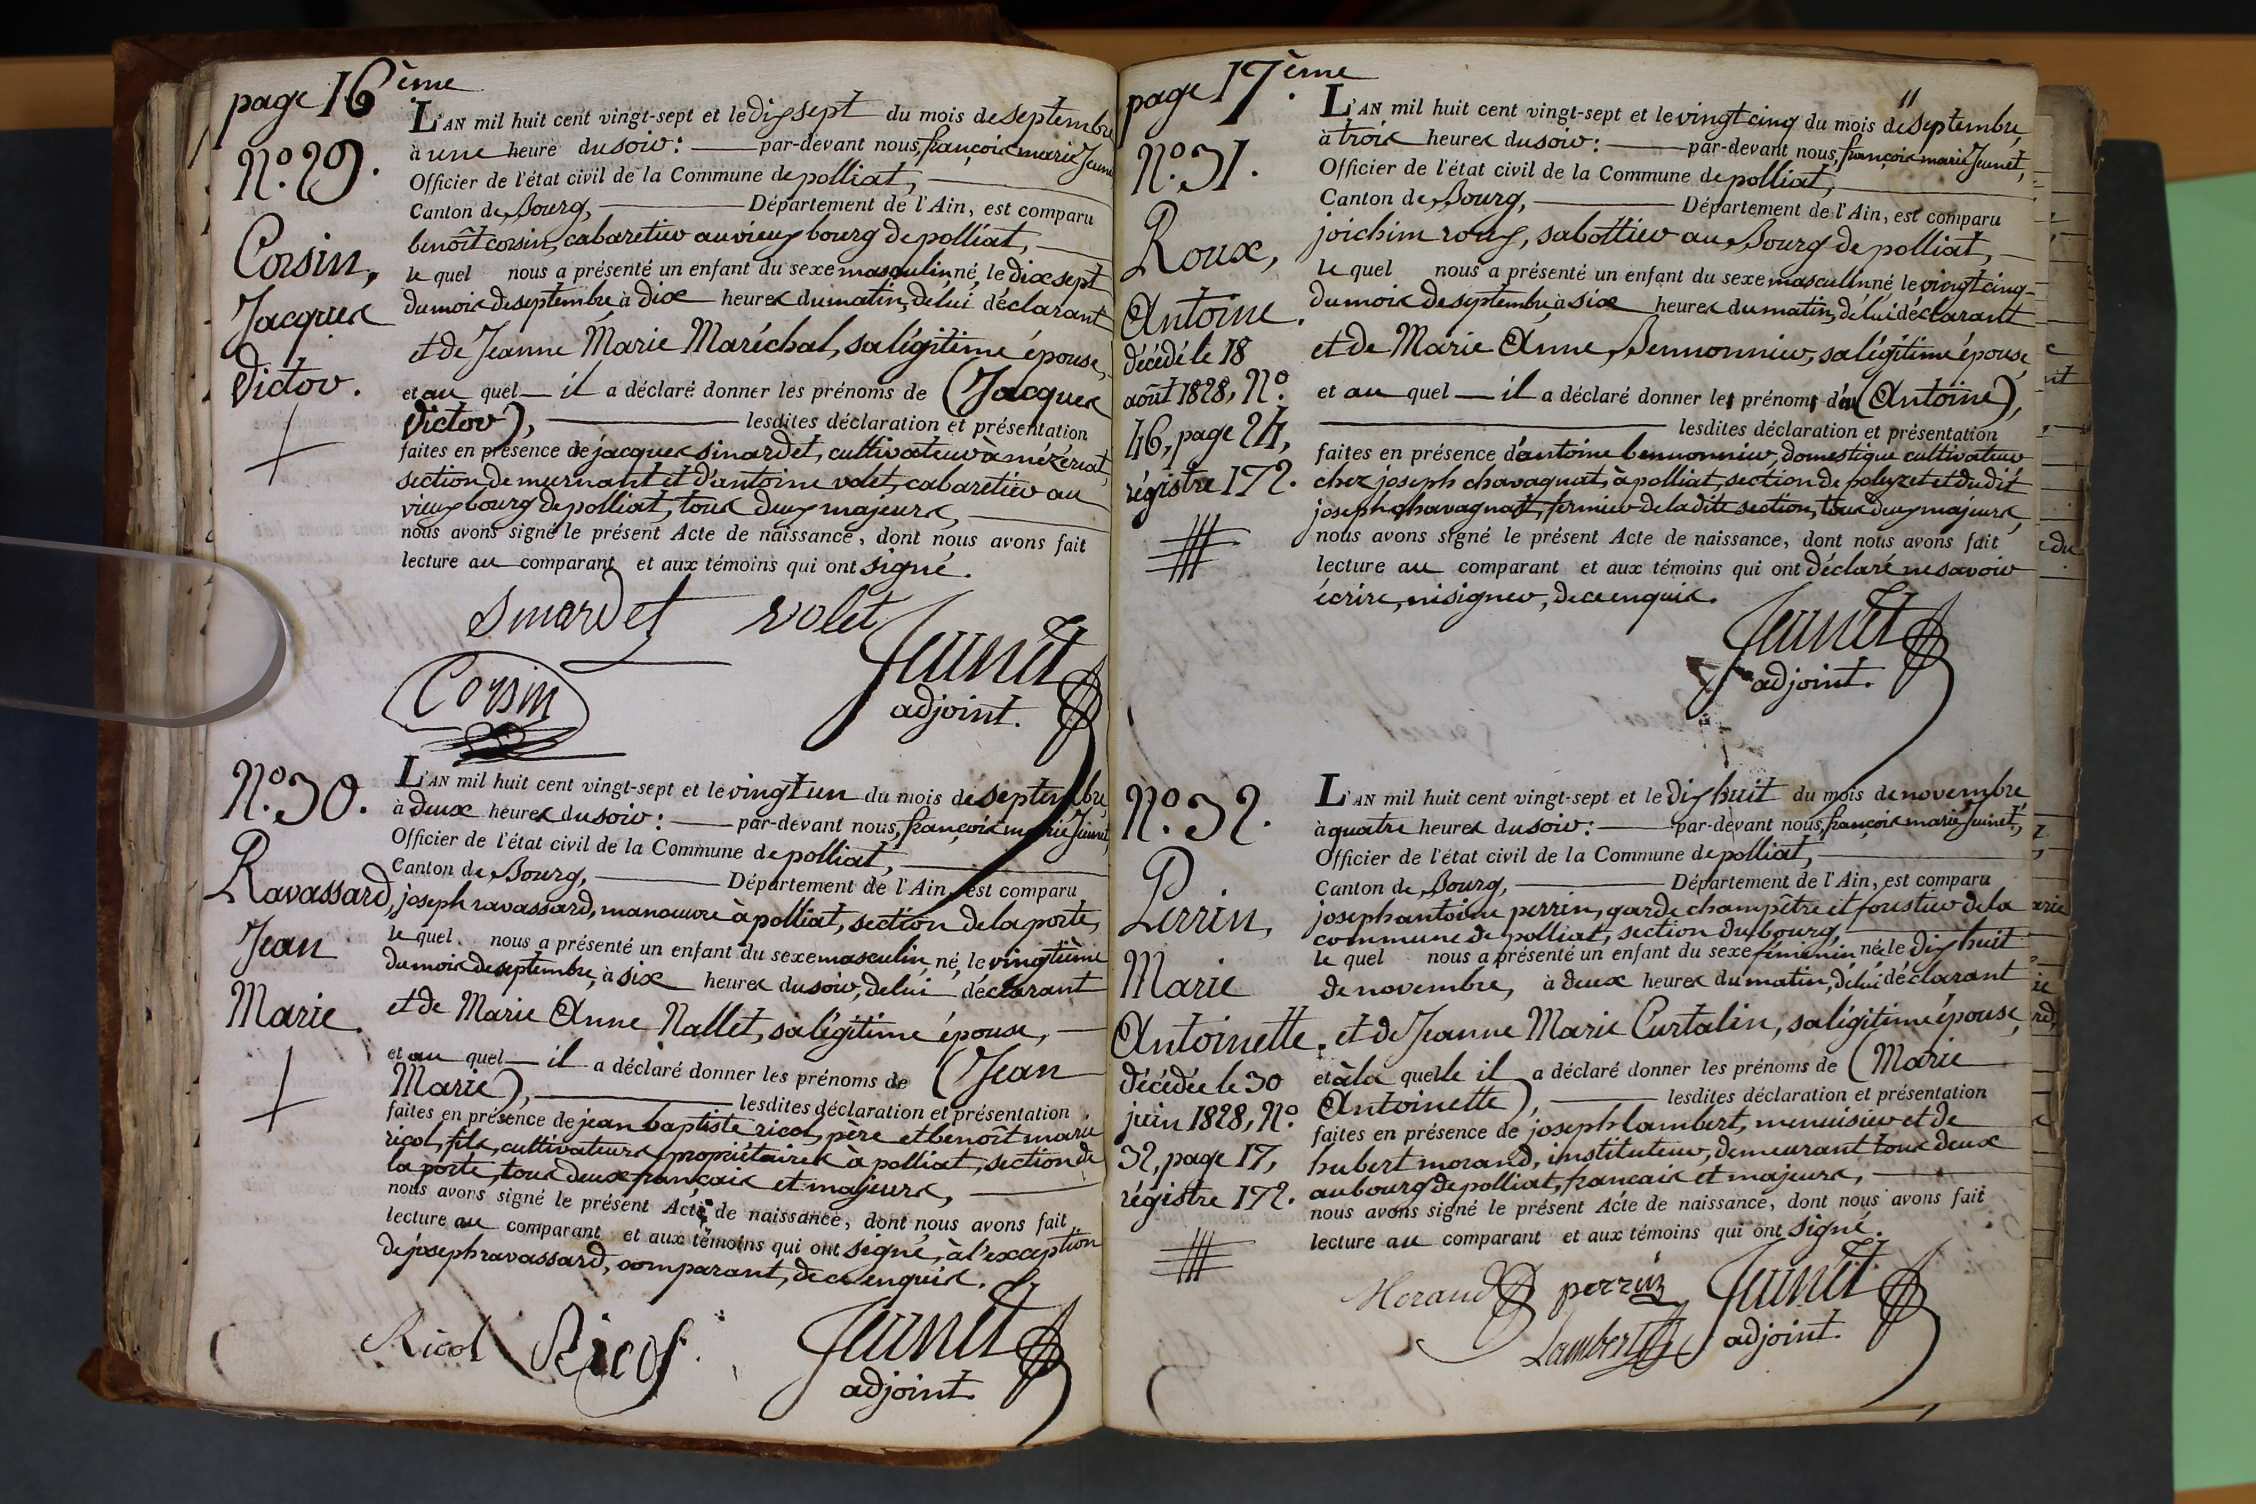 page 16ème
N.º 29.
Corsin,
Jacques
Victor.
L'AN mil huit cent vingt-sept et le dix sept du mois de septembre
à une heure du soir: par-devant nous, françois marie Jeunet
Officier de l'état civil de la Commune de polliat,
Canton de Bourg, Département de l'Ain, est comparu
benoît corsin, cabaretier au vieux bourg de polliat,
le quel nous a présenté un enfant du sexe masculin, né, le dix sept
du mois de septembre, à dix heures du matin, de lui déclarant
et de Jeanne Marie Maréchal, sa légitime épouse,
et au quel il a déclaré donner les prénoms de (Jacques
Victor), lesdites déclaration et présentation
faites en présence de jacques sinardet, cultivateur à mézériat,
section de murnant et d'antoine volet, cabaretier au
vieux bourg de polliat, tous deux majeurs,
nous avons signé le présent Acte de naissance, dont nous avons fait
lecture au comparant et aux témoins qui ont signé.
Sinardet volet
Jeunet
Corsin
adjoint.
N.º 30.
Ravassard,
Jean
Marie.
L'AN mil huit cent vingt-sept et le vingt un du mois de septembre
à deux heures du soir: par-devant nous, françois marie Jeunet,
Officier de l'état civil de la Commune de polliat,
Canton de Bourg, Département de l'Ain, est comparu
joseph ravassard, manoeuvre à polliat, section de la porte,
le quel nous a présenté un enfant du sexe masculin, né, le vingtième
du mois de septembre, à six heures du soir, de lui déclarant
et de Marie Anne Nallet, sa légitime épouse,
et au quel il a déclaré donner les prénoms de (Jean
Marie), lesdites déclaration et présentation
faites en présence de jean baptiste ricol, père et benoît marie
ricol, fils, cultivateurs propriétaires à polliat, section de
la porte, tous deux français et majeurs,
nous avons signé le présent Acte de naissance, dont nous avons fait
lecture au comparant et aux témoins qui ont signé, à l'exception
de joseph ravassard, comparant, de ce enquis.
Ricol Ricol
Jeunet
adjoint.
page 17.ème
11
N.º 31.
Roux,
Antoine.
décédé le 18
août 1828, N.º
46, page 24,
régistre 172.
L'AN mil huit cent vingt-sept et le vingt cinq du mois de septembre,
à trois heures du soir: par-devant nous, françois marie Jeunet,
Officier de l'état civil de la Commune de polliat,
Canton de Bourg, Département de l'Ain, est comparu
joichim roux, sabottier au Bourg de polliat,
le quel nous a présenté un enfant du sexe masculin né, le vingt cinq
du mois de septembre, à six heures du matin, de lui déclarant
et de Marie Anne Bennonnier, sa légitime épouse,
et au quel il a déclaré donner les prénoms d' (Antoine),
lesdites déclaration et présentation
faites en présence d'antoine bennonnier, domestique cultivateur
chez joseph chavagnat, à polliat, section de polyzet et du dit
joseph chavagnat, fermier de la dite section, tous deux majeurs,
nous avons signé le présent Acte de naissance, dont nous avons fait
lecture au comparant et aux témoins qui ont déclaré ne savoir
écrire, ni signer, de ce enquis.
Jeunet
adjoint.
N.º 32.
Perrin,
Marie
Antoinette.
décédée le 30
juin 1828, N.º
32, page 17,
régistre 172.
L'AN mil huit cent vingt-sept et le dix huit du mois de novembre
à quatre heures du soir: par-devant nous, françois marie Jeunet,
Officier de l'état civil de la Commune de polliat,
Canton de Bourg, Département de l'Ain, est comparu
joseph antoine perrin, garde champêtre et forestier de la
commune de polliat, section du bourg,
le quel nous a présenté un enfant du sexe féminin né le dix huit
de novembre, à deux heures du matin, de lui déclarant
et de Jeanne Marie Curtalin, sa légitime épouse,
et à la quelle il a déclaré donner les prénoms de (Marie
Antoinette), lesdites déclaration et présentation
faites en présence de joseph lambert, menuisier et de
hubert morand, instituteur, demeurant tous deux
au bourg de polliat, français et majeurs,
nous avons signé le présent Acte de naissance, dont nous avons fait
lecture au comparant et aux témoins qui ont signé.
Morand perrin Jeunet
Lambert adjoint.